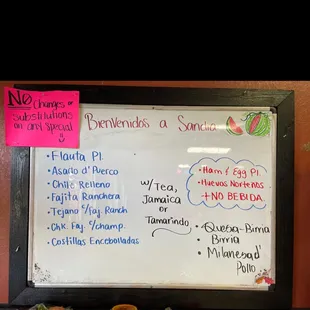 No Changes or
Substitutions
on any Special
Bienvenidos a Sandia
• Flauta Pl.
• Asado d' Puerco
• Chile Relleno
• Fajita Ranchera
• Tejano c/Faj. Ranch
• Chk. Faj. c/champ.
• Costillas Encebolladas
w/Tea,
Jamaica
or
Tamarindo
• Ham & Egg Pl.
• Huevos Norteños
+NO BEBIDA
• Quesa-Birria
• Birria
• Milanesa d'
Pollo